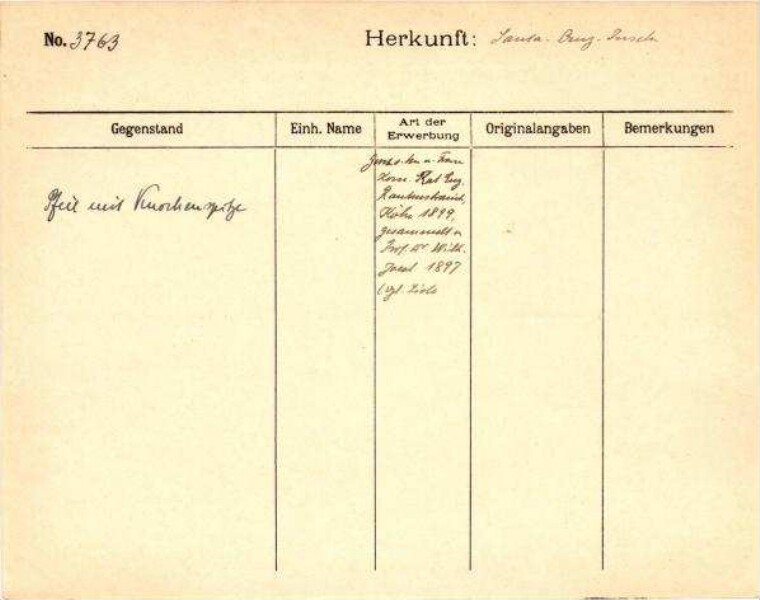 No. 3763
Herkunft: Santa-Cruz-Inseln
Gegenstand
Einh. Name
Art der Erwerbung
Originalangaben
Bemerkungen
Pfeil mit Knochenspitze
u. Frau
Kom. Rat Eug.
Rautenstrauch,
Köln 1899,
gesammelt v.
Prof. Dr Wilh.
Joest 1897
(vgl. Liste